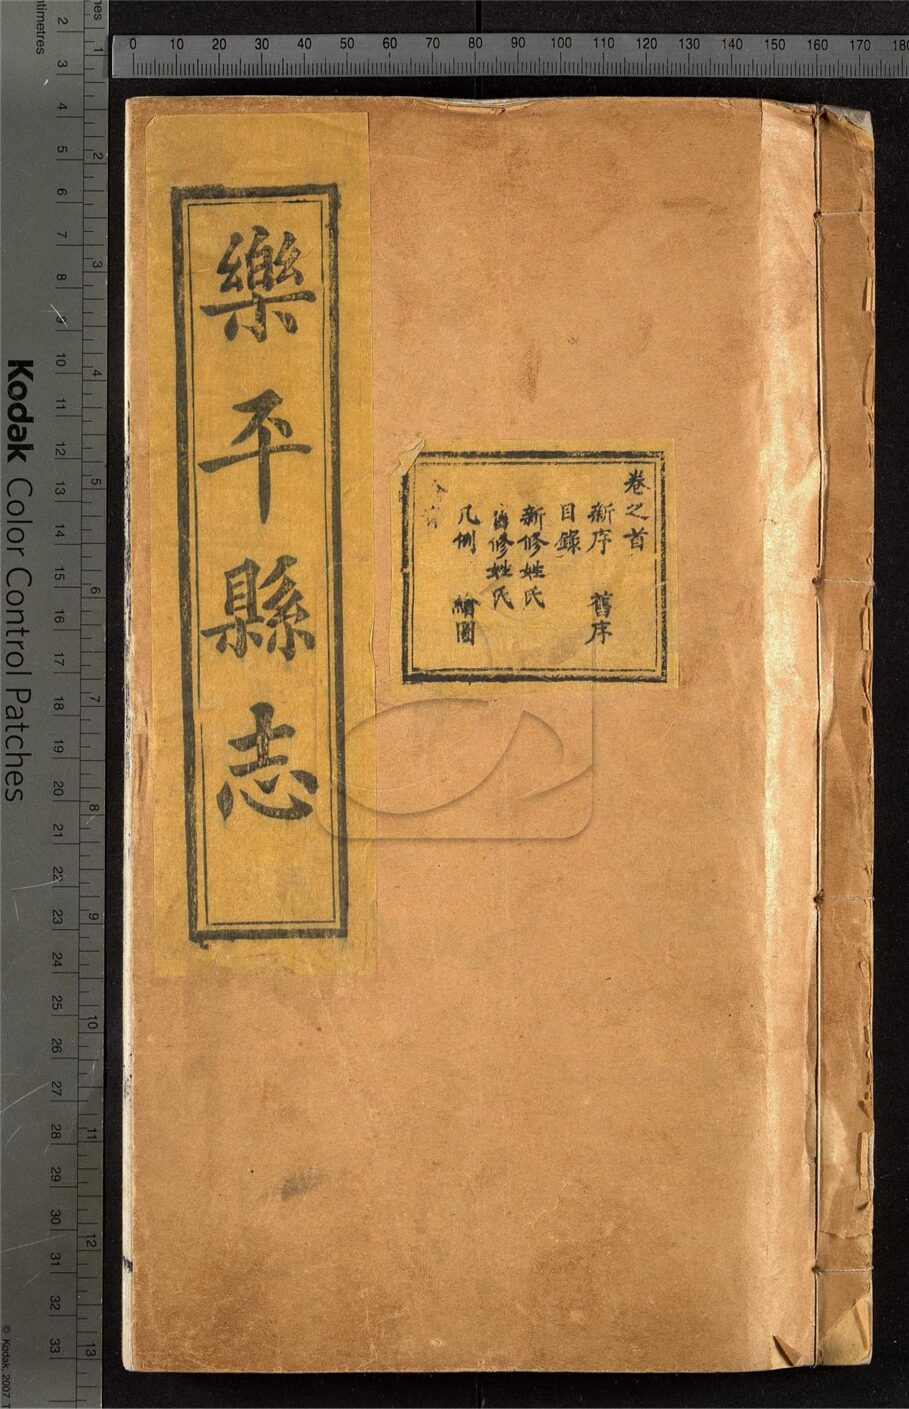 樂平縣志
卷之首
新序 舊序
目錄
新修姓氏
舊修姓氏
凡例 繪圖
Kodak Color Control Patches
© Kodak, 2007
0 10 20 30 40 50 60 70 80 90 100 110 120 130 140 150 160 170 180
2 3 4 5 6 7 8 9 10 11 12 13 14 15 16 17 18 19 20 21 22 23 24 25 26 27 28 29 30 31 32 33
1 2 3 4 5 6 7 8 9 10 11 12 13